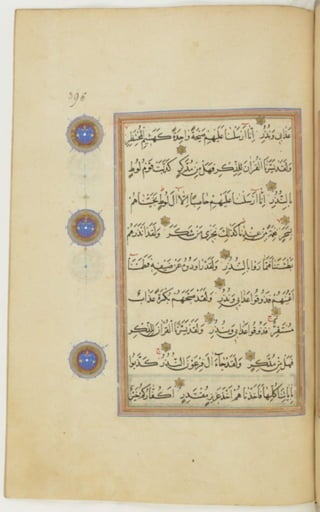 عَذَابِي وَنُذُرِ إِنَّا أَرْسَلْنَا عَلَيْهِمْ صَيْحَةً وَاحِدَةً كَهَشِيمِ الْمُحْتَظِرِ
وَلَقَدْ يَسَّرْنَا الْقُرْآنَ لِلذِّكْرِ فَهَلْ مِنْ مُدَّكِرٍ كَذَّبَتْ قَوْمُ لُوطٍ
بِالنُّذُرِ إِنَّا أَرْسَلْنَا عَلَيْهِمْ حَاصِبًا إِلَّا آلَ لُوطٍ نَجَّيْنَاهُمْ
بِسَحَرٍ نِعْمَةً مِنْ عِنْدِنَا كَذَلِكَ نَجْزِي مَنْ شَكَرَ وَلَقَدْ أَنْذَرَهُمْ
بَطْشَتَنَا فَتَمَارَوْا بِالنُّذُرِ وَلَقَدْ رَاوَدُوهُ عَنْ ضَيْفِهِ فَطَمَسْنَا
أَعْيُنَهُمْ فَذُوقُوا عَذَابِي وَنُذُرِ وَلَقَدْ صَبَّحَهُمْ بُكْرَةً عَذَابٌ
مُسْتَقِرٌّ فَذُوقُوا عَذَابِي وَنُذُرِ وَلَقَدْ يَسَّرْنَا الْقُرْآنَ لِلذِّكْرِ
فَهَلْ مِنْ مُدَّكِرٍ وَلَقَدْ جَاءَ آلَ فِرْعَوْنَ النُّذُرُ كَذَّبُوا
بِآيَاتِنَا كُلِّهَا فَأَخَذْنَاهُمْ أَخْذَ عَزِيزٍ مُقْتَدِرٍ أَكُفَّارُكُمْ خَيْرٌ